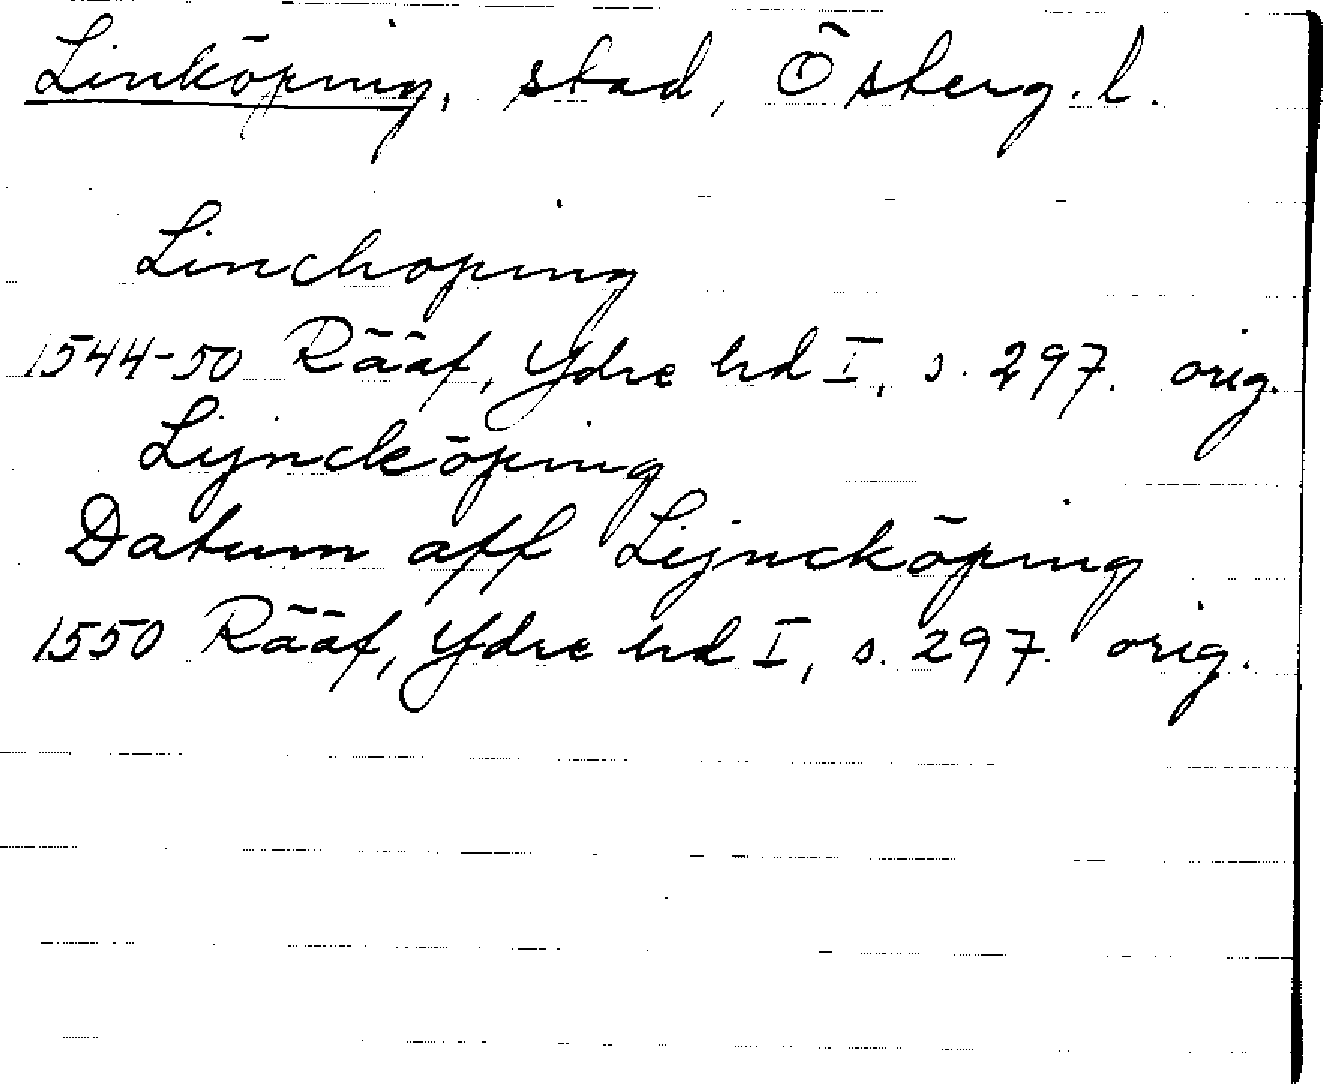 Linköping, stad, Österg.l.
Linchoping
1544-50 Rääf, Ydre hd I, s. 297. orig.
Lijncköping
Datum aff Lijncköping
1550 Rääf, Ydre hd I, s. 297. orig.